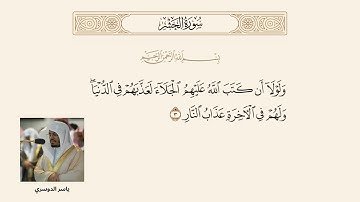 سُورَةُ الحَشْرِ
بِسْمِ اللَّهِ الرَّحْمَٰنِ الرَّحِيمِ
وَلَوْلَآ أَن كَتَبَ ٱللَّهُ عَلَيْهِمُ ٱلْجَلَآءَ لَعَذَّبَهُمْ فِى ٱلدُّنْيَا ۖ
وَلَهُمْ فِى ٱلْـَٔاخِرَةِ عَذَابُ ٱلنَّارِ ٣
ياسر الدوسري